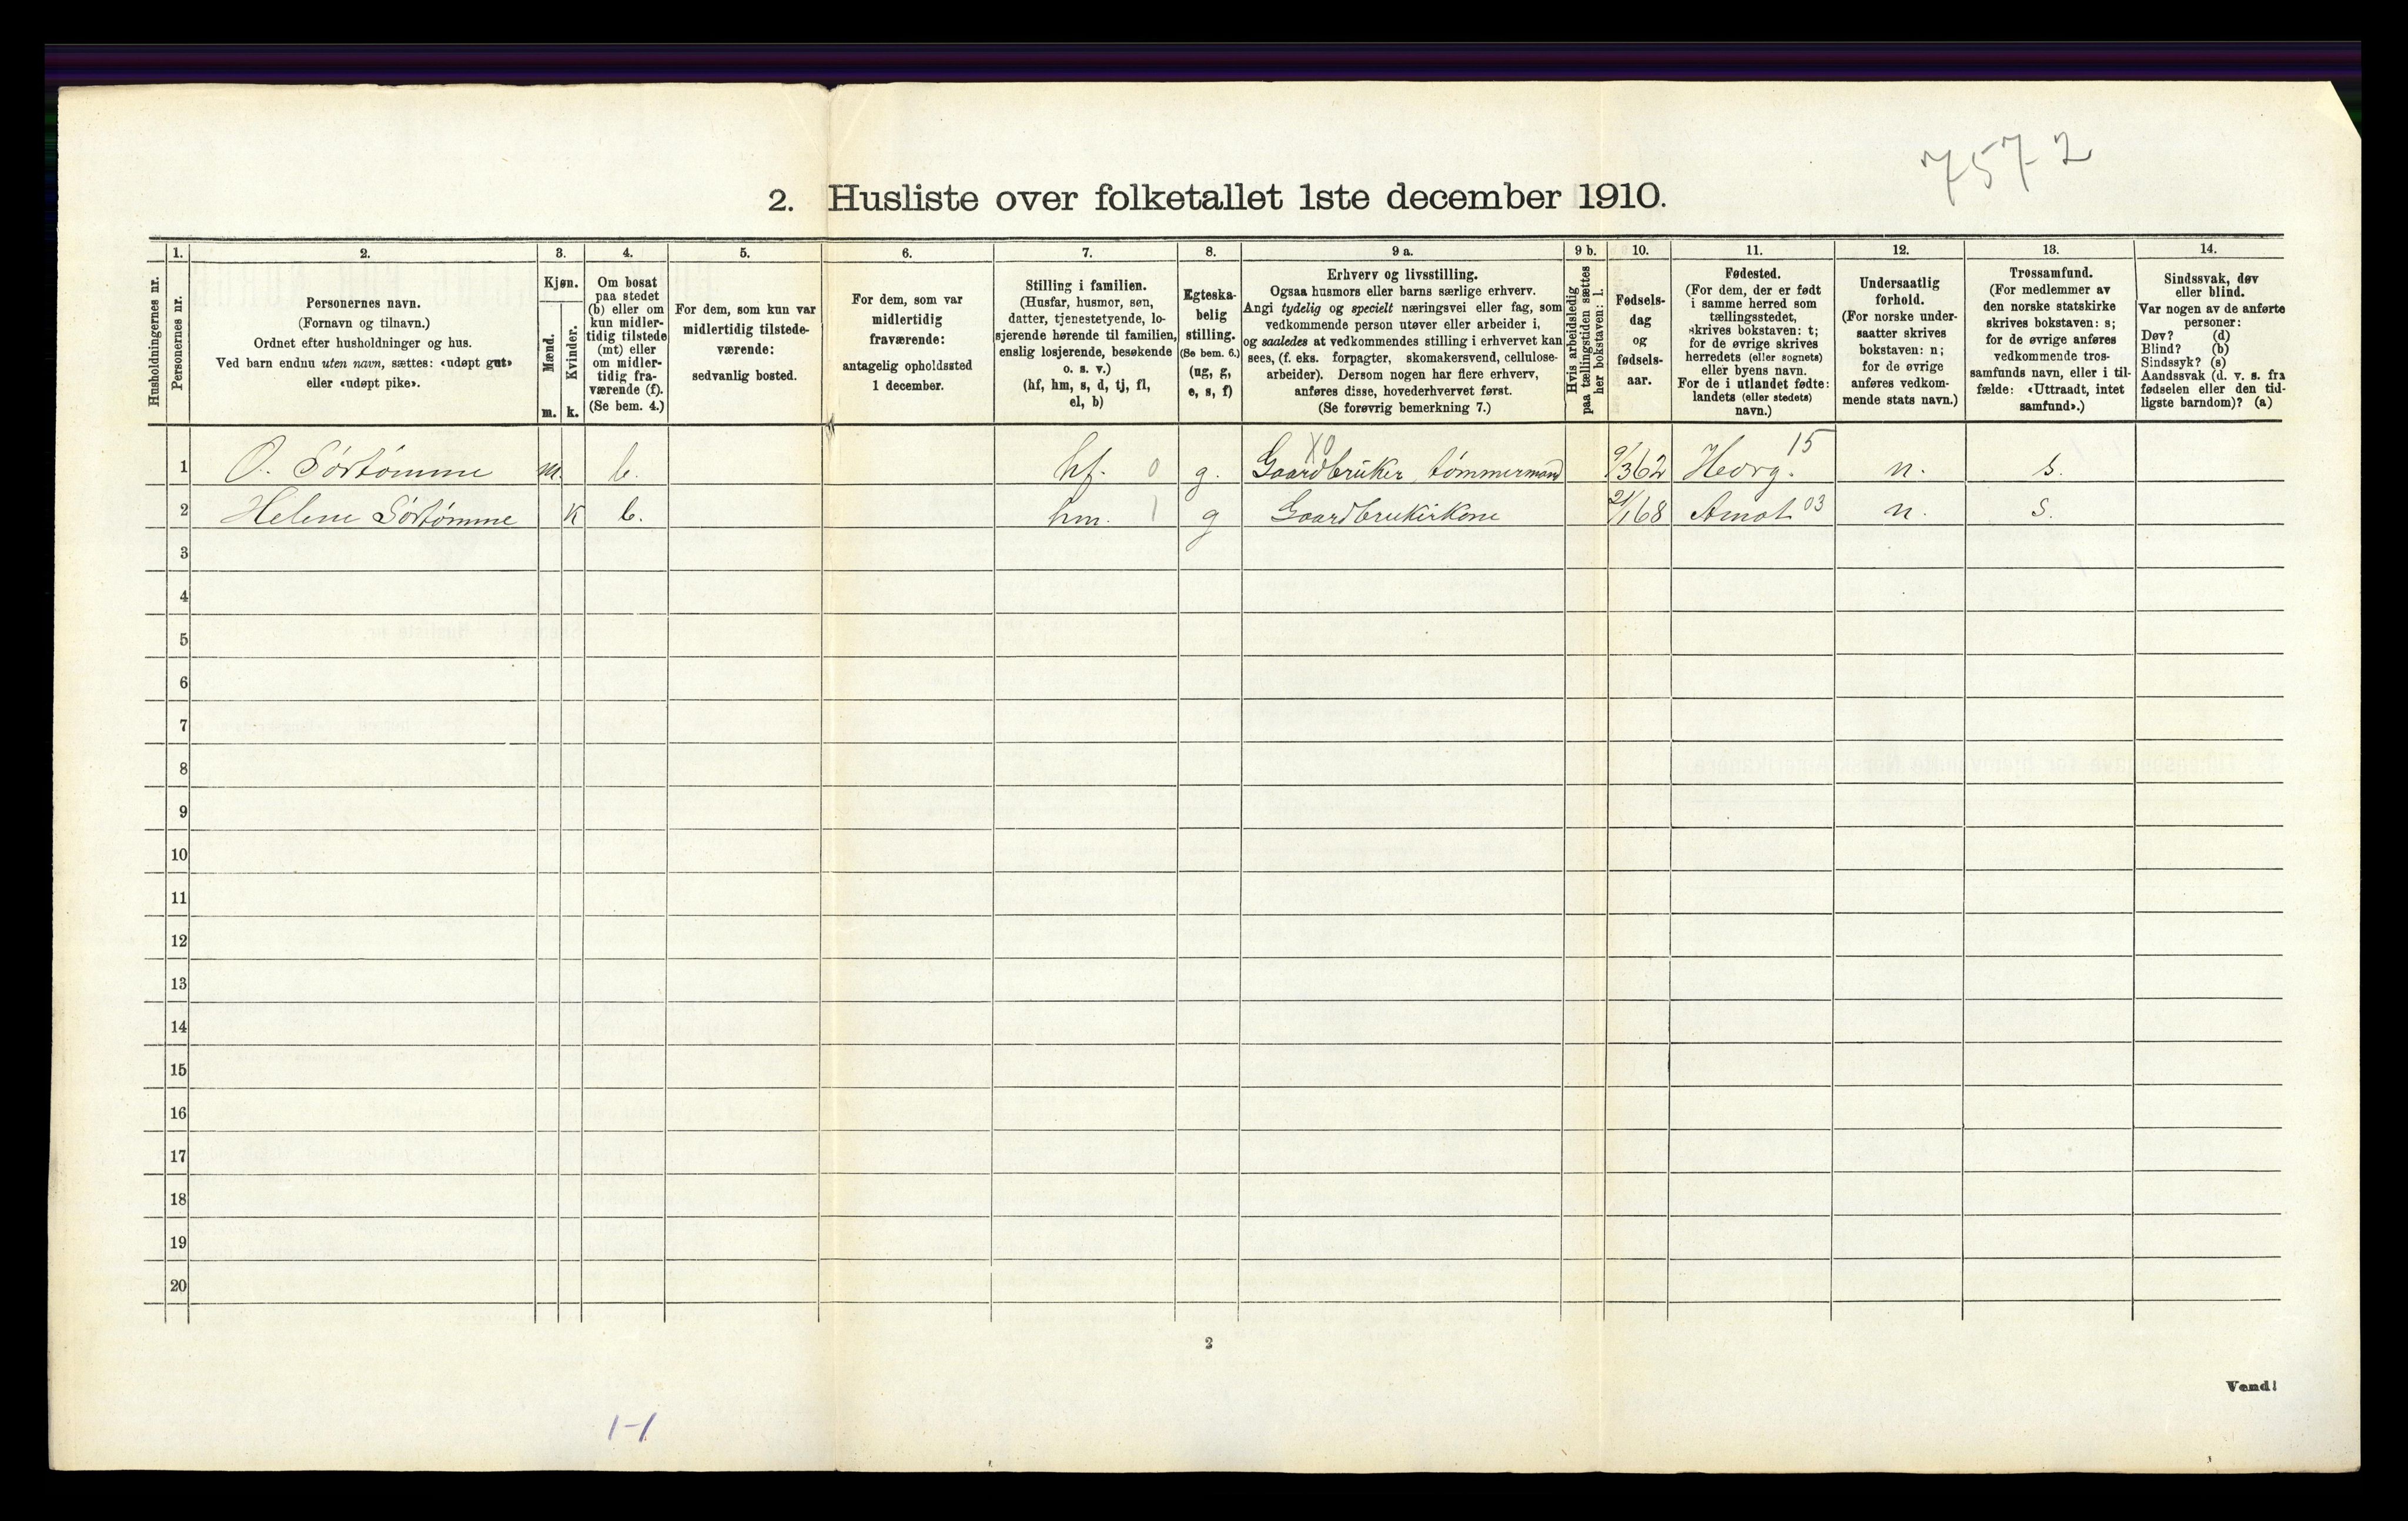 7572
2. Husliste over folketallet 1ste december 1910.
Husholdningernes nr.
1.
Personernes nr.
2.
Personernes navn.
(Fornavn og tilnavn.)
Ordnet efter husholdninger og hus.
Ved barn endnu uten navn, sættes: «udøpt gut»
eller «udøpt pike».
3.
Kjøn.
Mænd.
Kvinder.
m. k.
4.
Om bosat
paa stedet
(b) eller om
kun midler-
tidig tilstede
(mt) eller
om midler-
tidig fra-
værende (f).
(Se bem. 4.)
5.
For dem, som kun var
midlertidig tilstede-
værende:
sedvanlig bosted.
6.
For dem, som var
midlertidig
fraværende:
antagelig opholdssted
1 december.
7.
Stilling i familien.
(Husfar, husmor, søn,
datter, tjenestetyende, lo-
sjerende hørende til familien,
enslig losjerende, besøkende
o. s. v.)
(hf, hm, s, d, tj, fl,
el, b)
8.
Egteska-
belig
stilling.
(Se bem. 6.)
(ug, g,
e, s, f)
9 a.
Erhverv og livsstilling.
Ogsaa husmors eller barns særlige erhverv.
Angi tydelig og specielt næringsvei eller fag, som
vedkommende person utøver eller arbeider i,
og saaledes at vedkommendes stilling i erhvervet kan
sees, (f. eks. forpagter, skomakersvend, cellulose-
arbeider). Dersom nogen har flere erhverv,
anføres disse, hovederhvervet først.
(Se forøvrig bemerkning 7.)
9 b.
Hvis arbeidsledig
paa tællingstiden sættes
her bokstaven: l.
10.
Fødsels-
dag
og
fødsels-
aar.
11.
Fødested.
(For dem, der er født
i samme herred som
tællingsstedet,
skrives bokstaven: t;
for de øvrige skrives
herredets (eller sognets)
eller byens navn.
For de i utlandet fødte:
landets (eller stedets)
navn.)
12.
Undersaatlig
forhold.
(For norske under-
saatter skrives
bokstaven: n;
for de øvrige
anføres vedkom-
mende stats navn.)
13.
Trossamfund.
(For medlemmer av
den norske statskirke
skrives bokstaven: s;
for de øvrige anføres
vedkommende tros-
samfunds navn, eller i til-
fælde: «Uttraadt, intet
samfund».)
14.
Sindssvak, døv
eller blind.
Var nogen av de anførte
personer:
Døv? (d)
Blind? (b)
Sindssyk? (s)
Aandssvak (d. v. s. fra
fødselen eller den tid-
ligste barndom)? (a)
1 O. Sørtømme m. b. hf. 0 g. X0 Gaardbruker, tømmermand 9/3 62 Horg. 15 n. s.
2 Helene Sørtømme k b. hm. 1 g Gaardbrukirkone 21/1 68 Amot 03 n. s.
3
4
5
6
7
8
9
10
11
12
13
14
15
16
17
18
19
20
2
Vend!
1-1